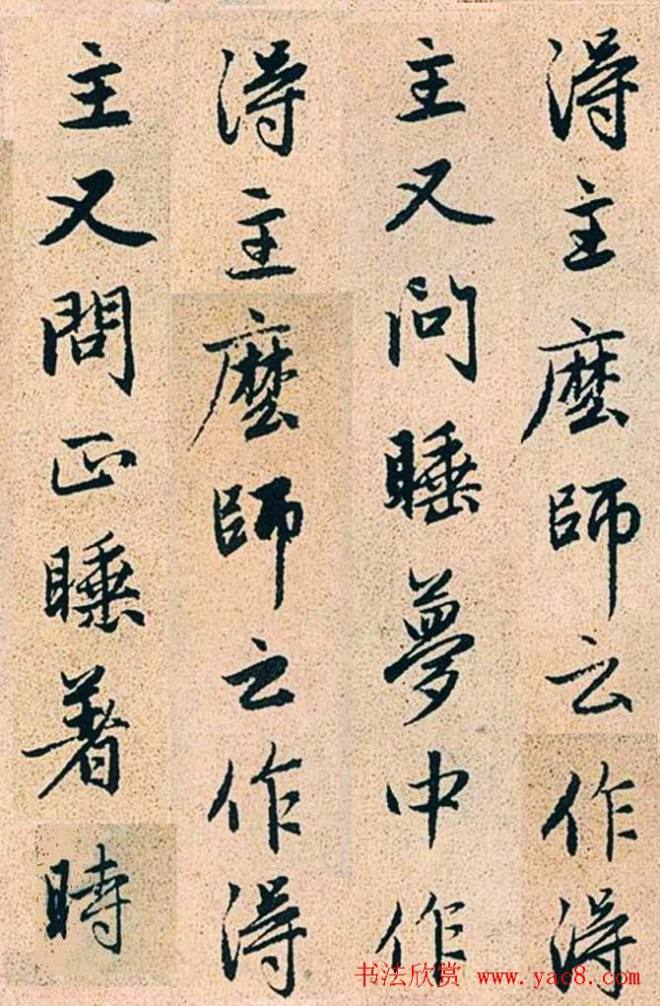 得主麽師云作得
主又問睡夢中作
得主麽師云作得
主又問正睡著時
书法欣赏 www.yac8.com